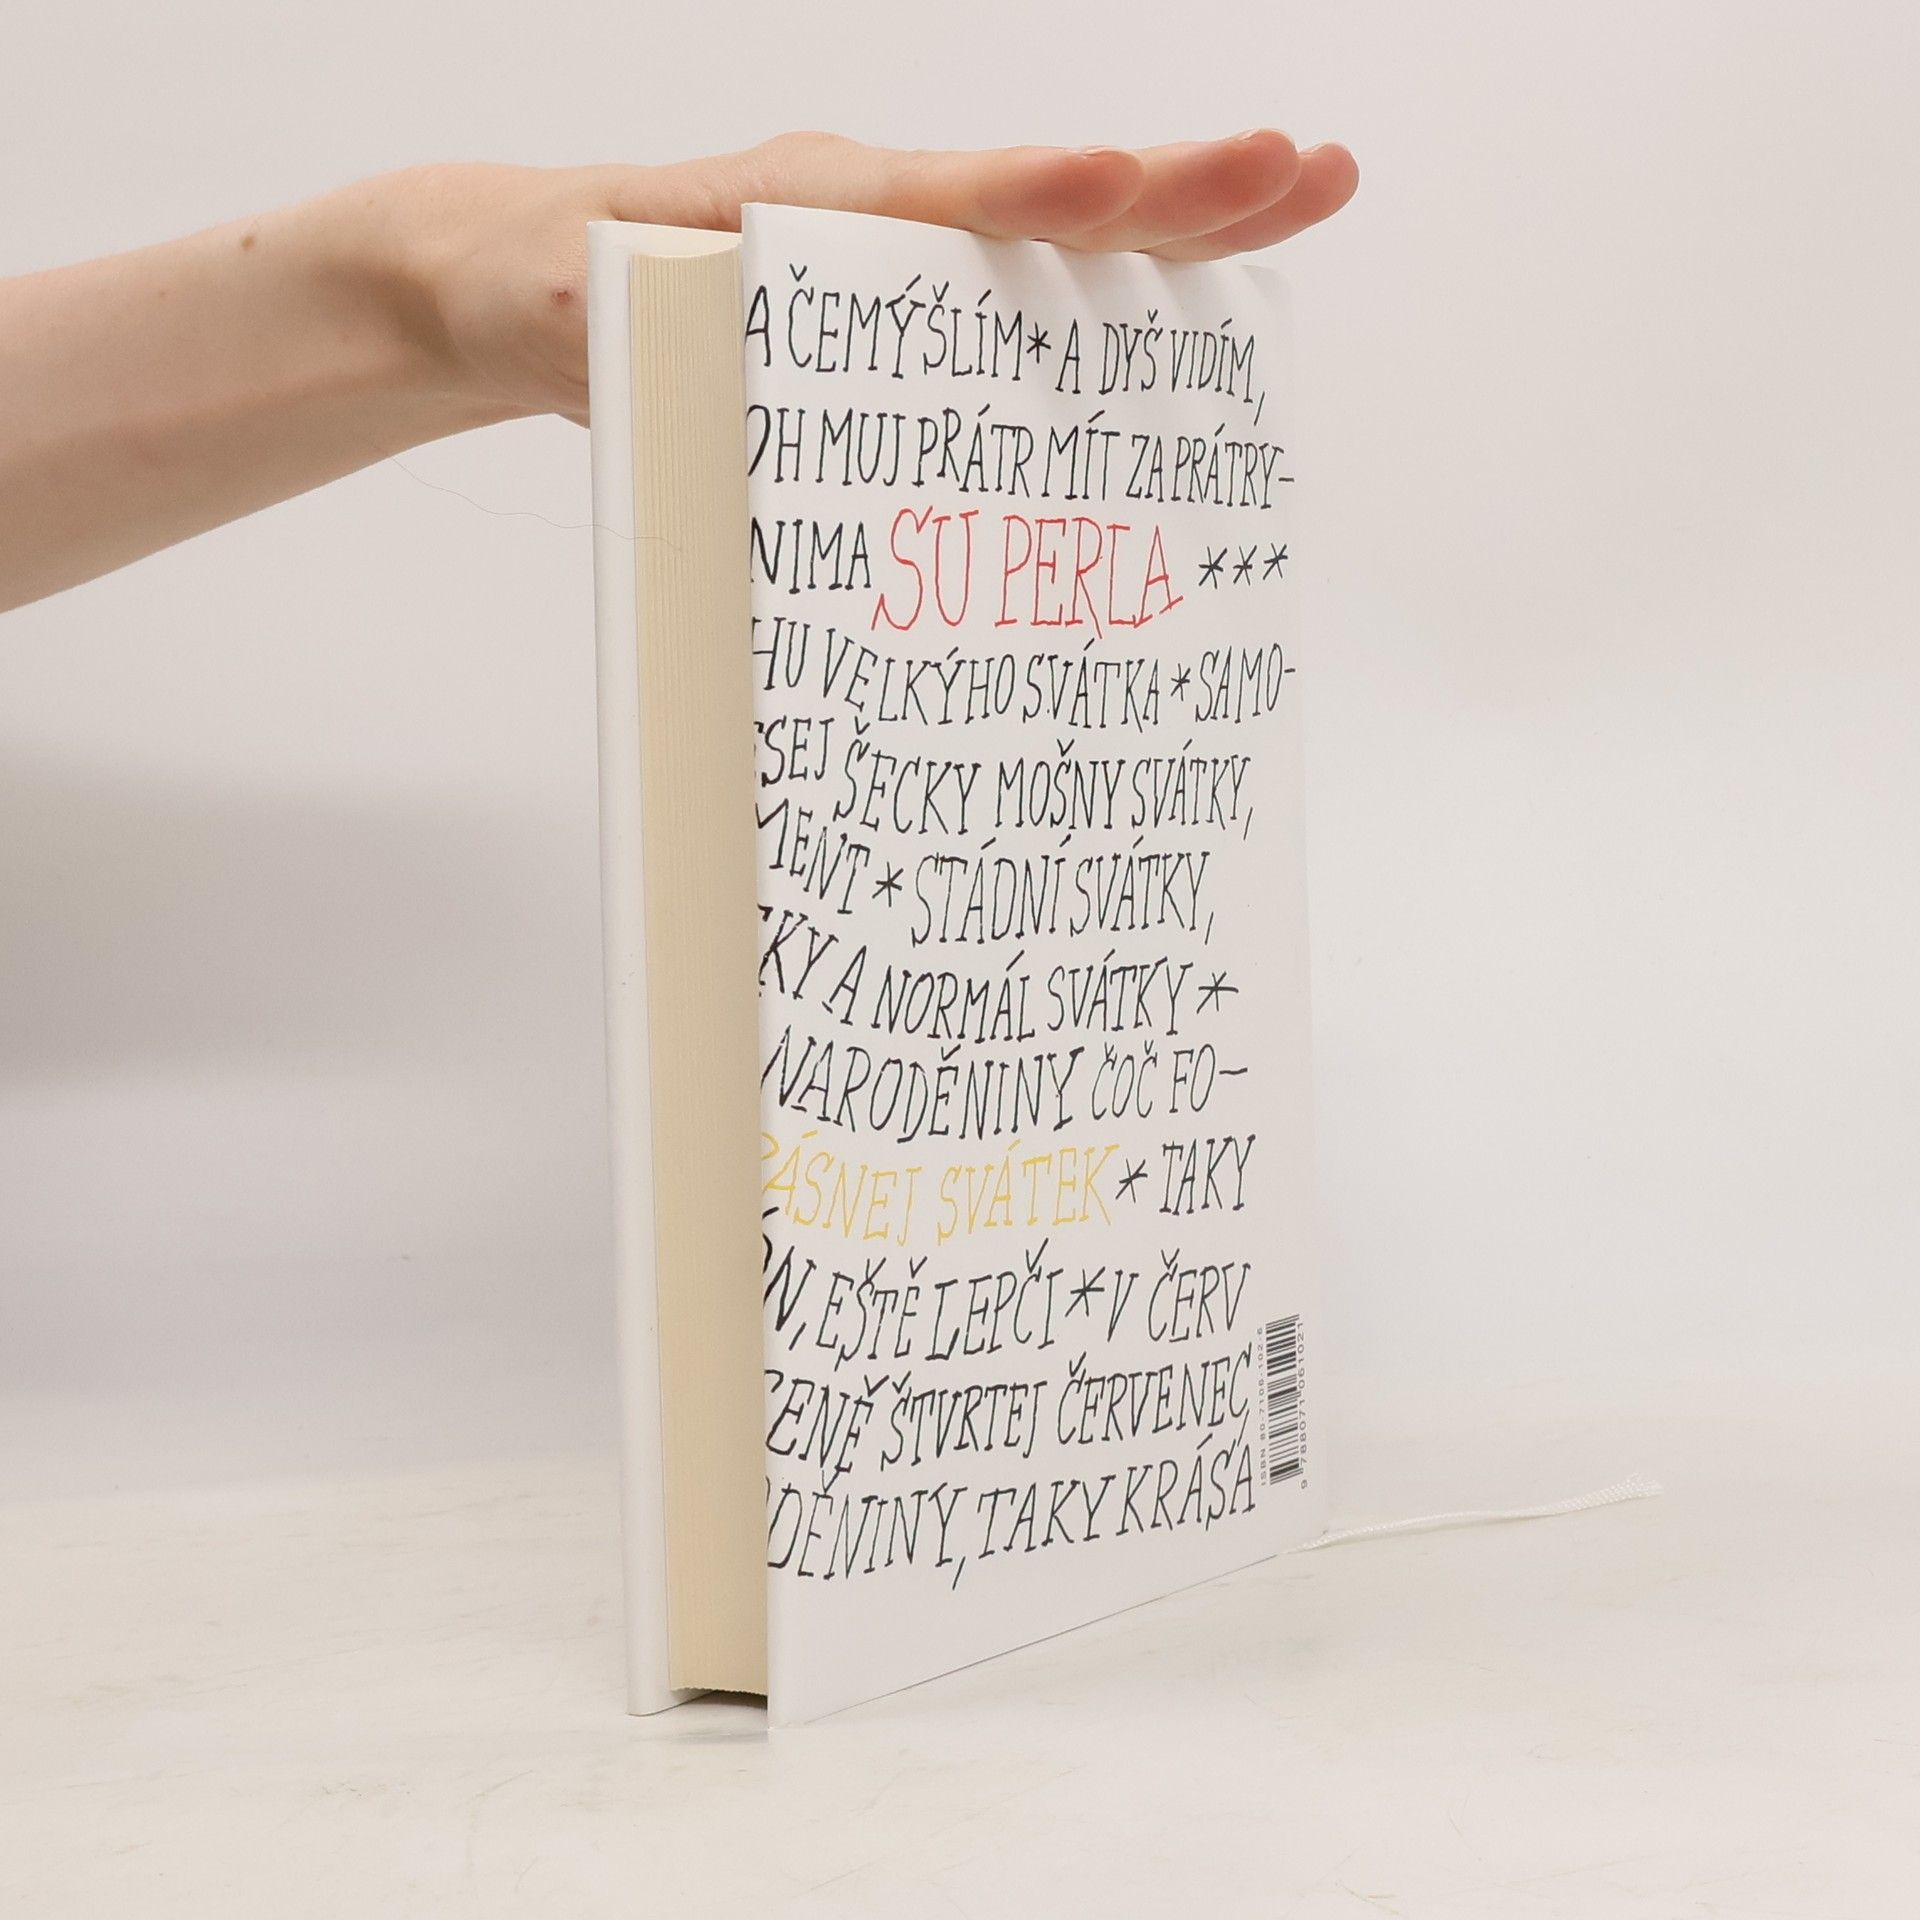 A ČEMÝŠLÍM * A DYŠ VIDÍM,
OH MUJ PRÁTR MÍT ZA PRÁTRY-
NIMA SU PERLA ***
HU VELKÝHO SVÁTKA * SAMO-
SEJ ŠECKY MOŠNY SVÁTKY,
MENT * STÁDNÍ SVÁTKY,
KY A NORMÁL SVÁTKY *
NARODĚNINY ČOČ FO-
ÁSNEJ SVÁTEK * TAKY
N, EŠTĚ LEPČI * V ČERV
ENĚ ŠTVRTEJ ČERVENEC
DĚNINY, TAKY KRÁSÁ
ISBN 80-7106-102-6
9 788071 061021